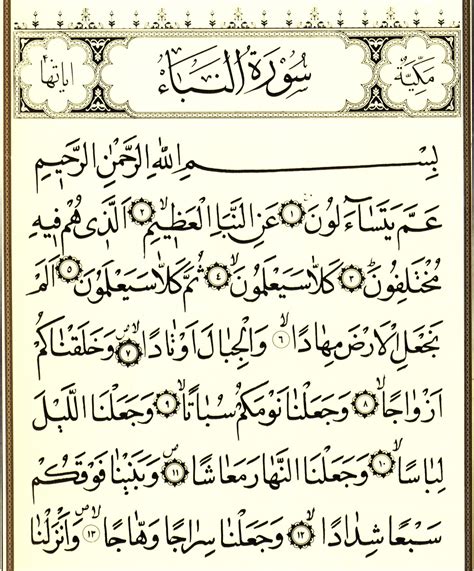 مكية
سورة النباء
اياتها
بسم الله الرحمن الرحيم
عَمَّ يَتَسَاءَلُونَ ١ عَنِ النَّبَاِ الْعَظِيمِ ٢ اَلَّذِى هُمْ فِيهِ
مُخْتَلِفُونَ ٣ كَلَّا سَيَعْلَمُونَ ٤ ثُمَّ كَلَّا سَيَعْلَمُونَ ٥ اَلَمْ
نَجْعَلِ الْاَرْضَ مِهَادًا ٦ وَالْجِبَالَ اَوْتَادًا ٧ وَخَلَقْنَاكُمْ
اَزْوَاجًا ٨ وَجَعَلْنَا نَوْمَكُمْ سُبَاتًا ٩ وَجَعَلْنَا الَّيْلَ
لِبَاسًا ١٠ وَجَعَلْنَا النَّهَارَ مَعَاشًا ١١ وَبَنَيْنَا فَوْقَكُمْ
سَبْعًا شِدَادًا ١٢ وَجَعَلْنَا سِرَاجًا وَهَّاجًا ١٣ وَاَنْزَلْنَا